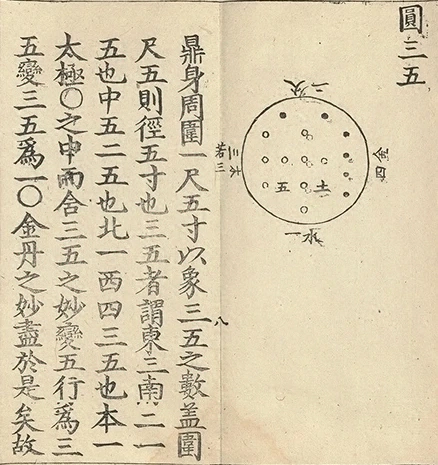 圓三五
二火
金四
三木
若三
土
五
水一
八
鼎身周圍一尺五寸以象三五之數蓋圍
尺五則徑五寸也三五者謂東三南二一
五也中五二五也北一西四三五也本一
太極〇之中而含三五之妙變五行爲三
五變三五爲一〇金丹之妙盡於是矣故